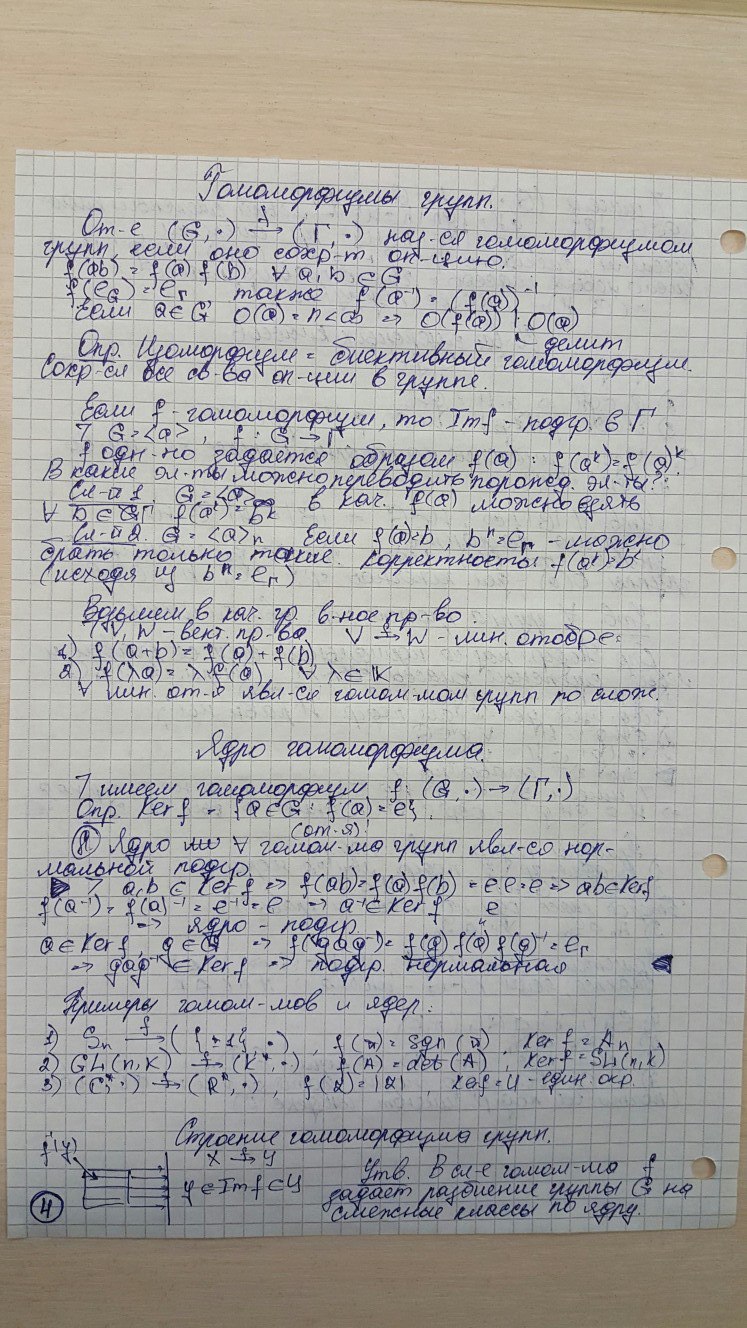 Гомоморфизмы групп.
От-е (G,·) –f→ (Г,·) наз-ся гомоморфизмом
групп, если оно сохр-т оп-цию.
f(ab) = f(a) f(b) ∀ a,b ∈ G
f(e_G) = e_Г также f(a⁻¹) = (f(a))⁻¹
Если a ∈ G O(a) = n < ∞ => O(f(a)) | O(a)
делит
Опр. Изоморфизм = биективный гомоморфизм.
Сохр-ся все св-ва оп-ции в группе.
Если f - гомоморфизм, то Im f - подгр. в Г
7 G = <a>, f: G → Г
f одн-но задается образом f(a) : f(aᵏ) = f(a)ᵏ
В какие эл-ты можно переводить порожд. эл-ты?
Сл-й 1. G = <a> в кач. f(a) можно взять
∀ b ∈ Г f(aᵏ) = bᵏ
Сл-й 2. G = <a>ₙ Если f(a) = b, bⁿ = e_Г - можно
брать только такие. Корректность: f(aᵏ) = bᵏ
(исходя из bⁿ = e_Г)
Возьмем в кач. гр. в-ное пр-во.
V, W - вект. пр-ва V –f→ W - лин. отобр-е
1) f(a+b) = f(a) + f(b)
2) f(λa) = λf(a) ∀ λ ∈ K
∀ лин. от-е явл-ся гомом-мом групп по слож.
Ядро гомоморфизма.
7 имеем гомоморфизм f: (G,·) → (Г,·)
Опр. Ker f = {a ∈ G : f(a) = e}.
(от-я)
Ядро ∀ гомом-ма групп явл-ся нор-
мальной подгр.
▶ 7 a,b ∈ Ker f => f(ab) = f(a) f(b) = e·e = e => ab ∈ Ker f
f(a⁻¹) = f(a)⁻¹ = e⁻¹ = e => a⁻¹ ∈ Ker f e
=> ядро - подгр.
a ∈ Ker f, g ∈ G => f(gag⁻¹) = f(g) f(a) f(g)⁻¹ = e_Г
=> gag⁻¹ ∈ Ker f => подгр. нормальная ◀
Примеры гомом-мов и ядер:
1) Sₙ –f→ ({±1}, ·), f(π) = sgn(π), Ker f = Aₙ
2) GL(n,K) –f→ (K*,·) f(A) = det(A), Ker f = SL(n,K)
3) (C*,·) –f→ (R*,·), f(z) = |z|, Ker f = U - един. окр.
Строение гомоморфизма групп.
f⁻¹(y) X –f→ Y
y ∈ Im f ⊂ Y
Утв. В сл-е гомом-ма f
задает разбиение группы G на
смежные классы по ядру.
4